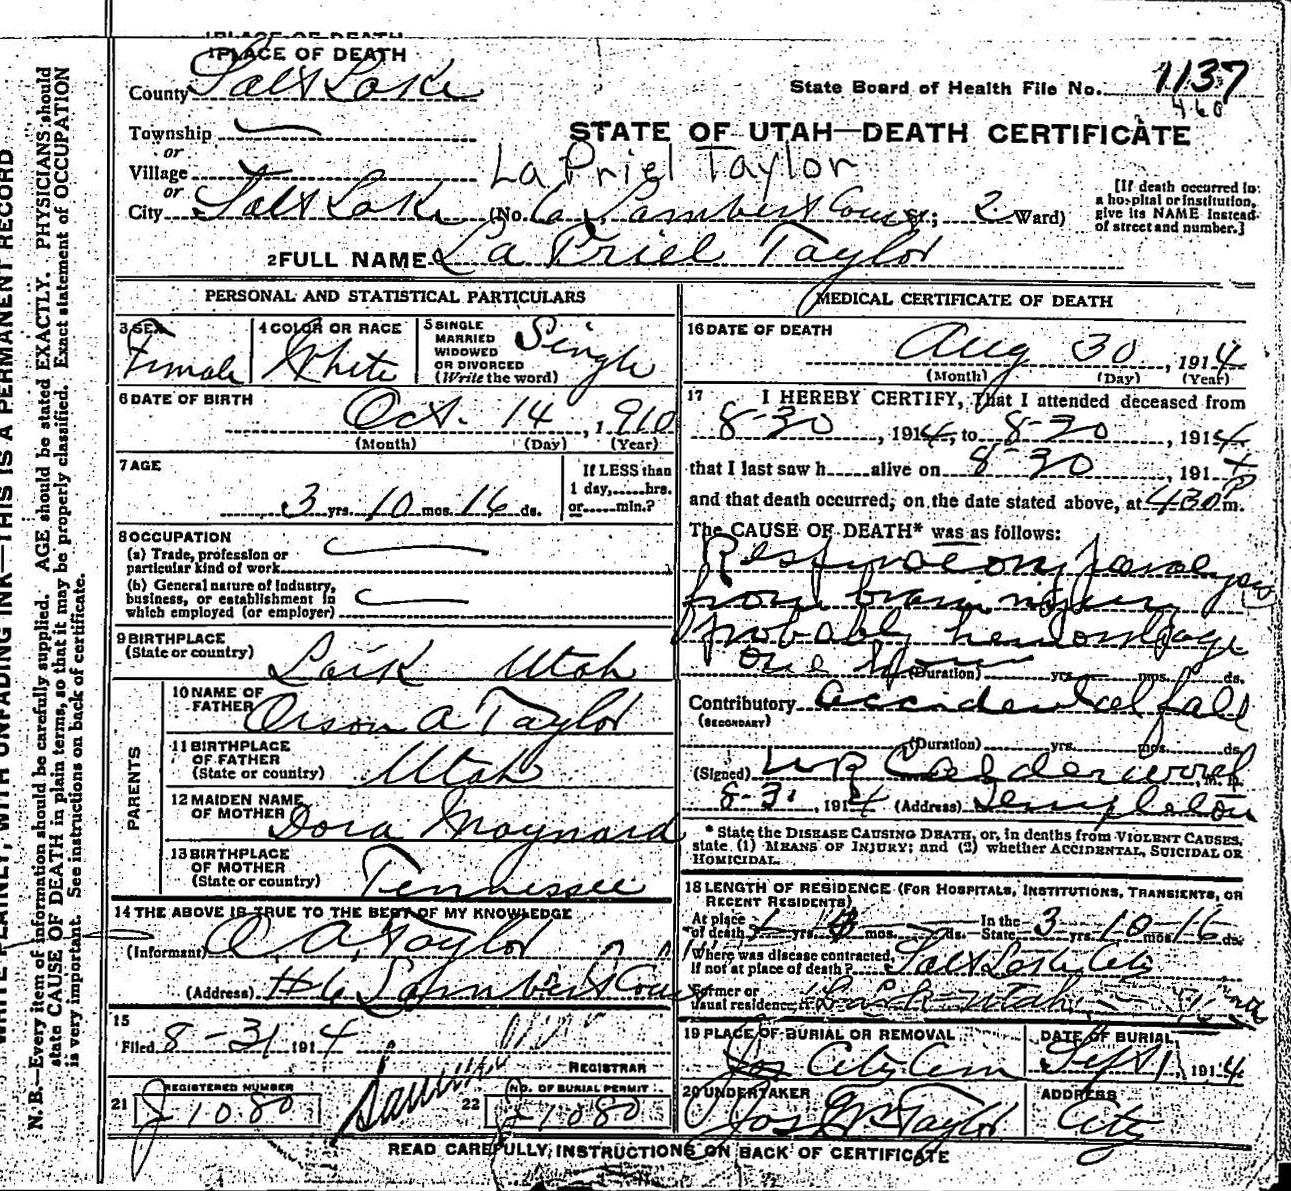 1 PLACE OF DEATH
County Salt Lake
State Board of Health File No. 1137
460
Township
or
Village
or
City Salt Lake (No. 6 Lambert Court St; 2 Ward)
STATE OF UTAH—DEATH CERTIFICATE
La Priel Taylor
[If death occurred in
a hospital or institution,
give its NAME instead
of street and number.]
2 FULL NAME La Priel Taylor
PERSONAL AND STATISTICAL PARTICULARS
3 SEX Female
4 COLOR OR RACE White
5 SINGLE
MARRIED
WIDOWED
OR DIVORCED
(Write the word) Single
6 DATE OF BIRTH
Oct. 14, 1910
(Month) (Day) (Year)
7 AGE
3 yrs. 10 mos. 16 ds.
If LESS than
1 day,......hrs.
or......min.?
8 OCCUPATION
(a) Trade, profession or
particular kind of work
(b) General nature of industry,
business, or establishment in
which employed (or employer)
9 BIRTHPLACE
(State or country)
Lark Utah
PARENTS
10 NAME OF
FATHER Orson A Taylor
11 BIRTHPLACE
OF FATHER
(State or country) Utah
12 MAIDEN NAME
OF MOTHER Dora Maynard
13 BIRTHPLACE
OF MOTHER
(State or country) Tennessee
14 THE ABOVE IS TRUE TO THE BEST OF MY KNOWLEDGE
(Informant) O. A. Taylor
(Address) #6 Lambert Court
15
Filed 8-31 1914
REGISTRAR
21 REGISTERED NUMBER
J 1080
22 NO. OF BURIAL PERMIT
J 1080
MEDICAL CERTIFICATE OF DEATH
16 DATE OF DEATH
Aug 30, 1914
(Month) (Day) (Year)
17 I HEREBY CERTIFY, That I attended deceased from
8-30, 1914, to 8-30, 1914
that I last saw h......alive on 8-30, 1914
and that death occurred, on the date stated above, at 430 P m.
The CAUSE OF DEATH* was as follows:
Respiratory Paralysis
from brain injury
Probably hemorrhage
one Hour (Duration) yrs. mos. ds.
Contributory accidental fall
(SECONDARY)
(Duration) yrs. mos. ds.
(Signed) W R Calderwood M. D.
8-31, 1914 (Address) Templeton
* State the DISEASE CAUSING DEATH, or, in deaths from VIOLENT CAUSES,
state (1) MEANS OF INJURY; and (2) whether ACCIDENTAL, SUICIDAL OR
HOMICIDAL.
18 LENGTH OF RESIDENCE (FOR HOSPITALS, INSTITUTIONS, TRANSIENTS, OR
RECENT RESIDENTS)
At place
of death yrs. mos. ds. In the
State 3 yrs. 10 mos. 16 ds.
Where was disease contracted,
if not at place of death? Salt Lake City
Former or
usual residence Lark Utah
19 PLACE OF BURIAL OR REMOVAL
City Cem
DATE OF BURIAL
Sept 1, 1914
20 UNDERTAKER
Jos Wm Taylor
ADDRESS
City
READ CAREFULLY INSTRUCTIONS ON BACK OF CERTIFICATE
WRITE PLAINLY, WITH UNFADING INK—THIS IS A PERMANENT RECORD
N. B.—Every item of information should be carefully supplied. AGE should be stated EXACTLY. PHYSICIANS should
state CAUSE OF DEATH in plain terms, so that it may be properly classified. Exact statement of OCCUPATION
is very important. See instructions on back of certificate.